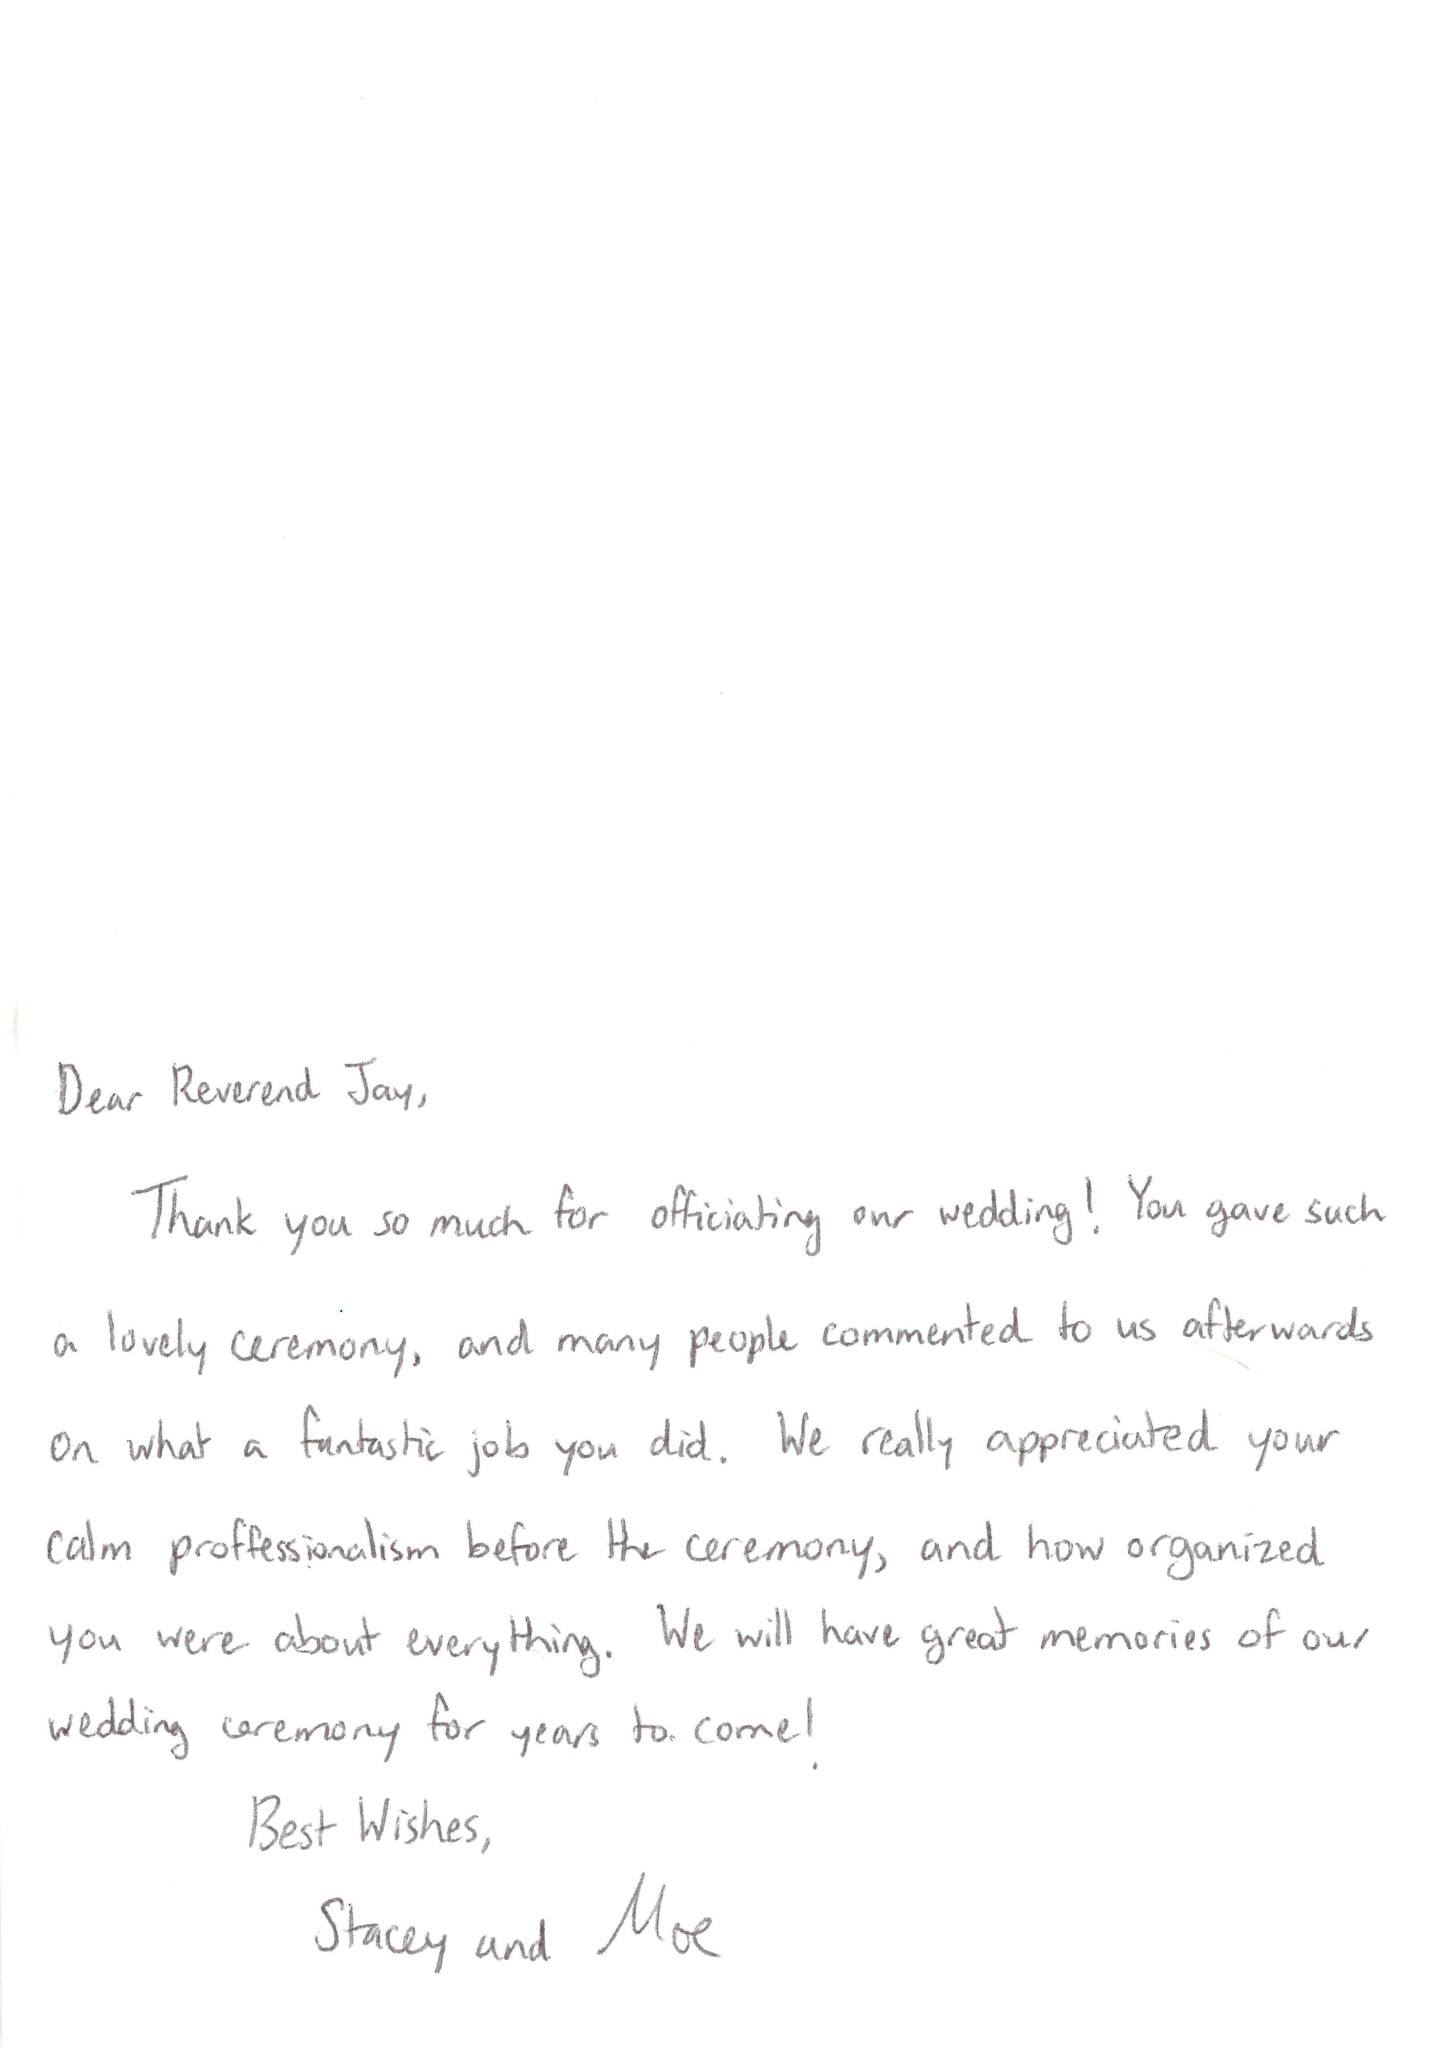 Dear Reverend Jay,
Thank you so much for officiating our wedding! You gave such
a lovely ceremony, and many people commented to us afterwards
on what a fantastic job you did. We really appreciated your
calm proffessionalism before the ceremony, and how organized
you were about everything. We will have great memories of our
wedding ceremony for years to come!
Best Wishes,
Stacey and Moe